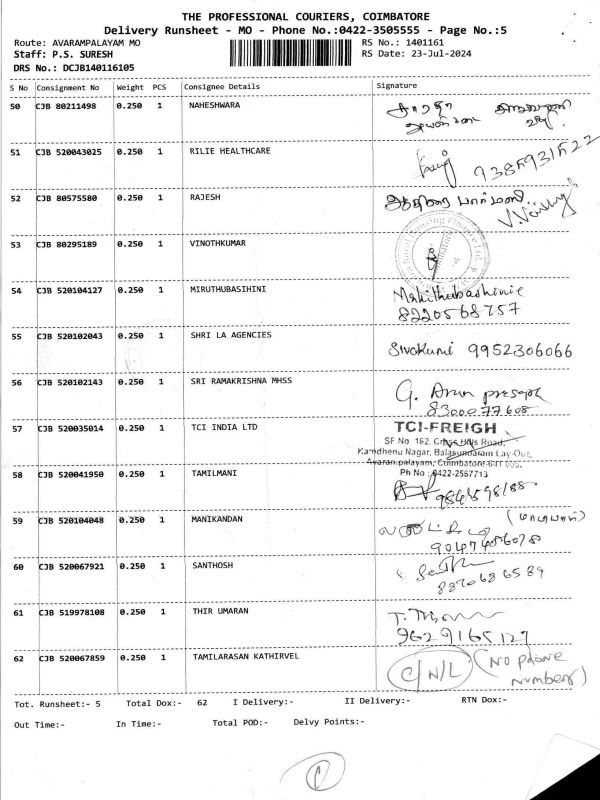 THE PROFESSIONAL COURIERS, COIMBATORE
Delivery Runsheet - MO - Phone No.:0422-3505555 - Page No.:5
Route: AVARAMPALAYAM MO RS No.: 1401161
Staff: P.S. SURESH RS Date: 23-Jul-2024
DRS No.: DCJB140116105
S No Consignment No Weight PCS Consignee Details Signature
50 CJB 80211498 0.250 1 NAHESHWARA
51 CJB 520043025 0.250 1 RILIE HEALTHCARE
52 CJB 80575580 0.250 1 RAJESH
53 CJB 80295189 0.250 1 VINOTHKUMAR
54 CJB 520104127 0.250 1 MIRUTHUBASIHINI
8220568757
55 CJB 520102043 0.250 1 SHRI LA AGENCIES
9952306066
56 CJB 520102143 0.250 1 SRI RAMAKRISHNA MHSS G. Arun
57 CJB 520035014 0.250 1 TCI INDIA LTD TCI-FREIGH
SF No 162, Cross Hills Road,
Kamdhenu Nagar, Balasundaram Lay-Out,
Avaran.palayam, Coimbatore-641 006,
Ph No : 0422-2567713
58 CJB 520041950 0.250 1 TAMILMANI
59 CJB 520104048 0.250 1 MANIKANDAN
60 CJB 520067921 0.250 1 SANTHOSH
61 CJB 519978108 0.250 1 THIR UMARAN
9629165127
62 CJB 520067859 0.250 1 TAMILARASAN KATHIRVEL C/N/L (No phone
number)
Tot. Runsheet:- 5 Total Dox:- 62 I Delivery:- II Delivery:- RTN Dox:-
Out Time:- In Time:- Total POD:- Delvy Points:-